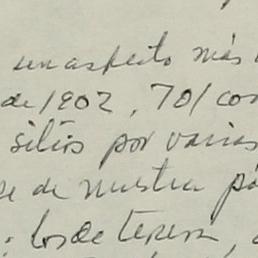 un aspecto más
de 1902, 701 con
sitios por varias
se de nuestra pá
; los de teresa,